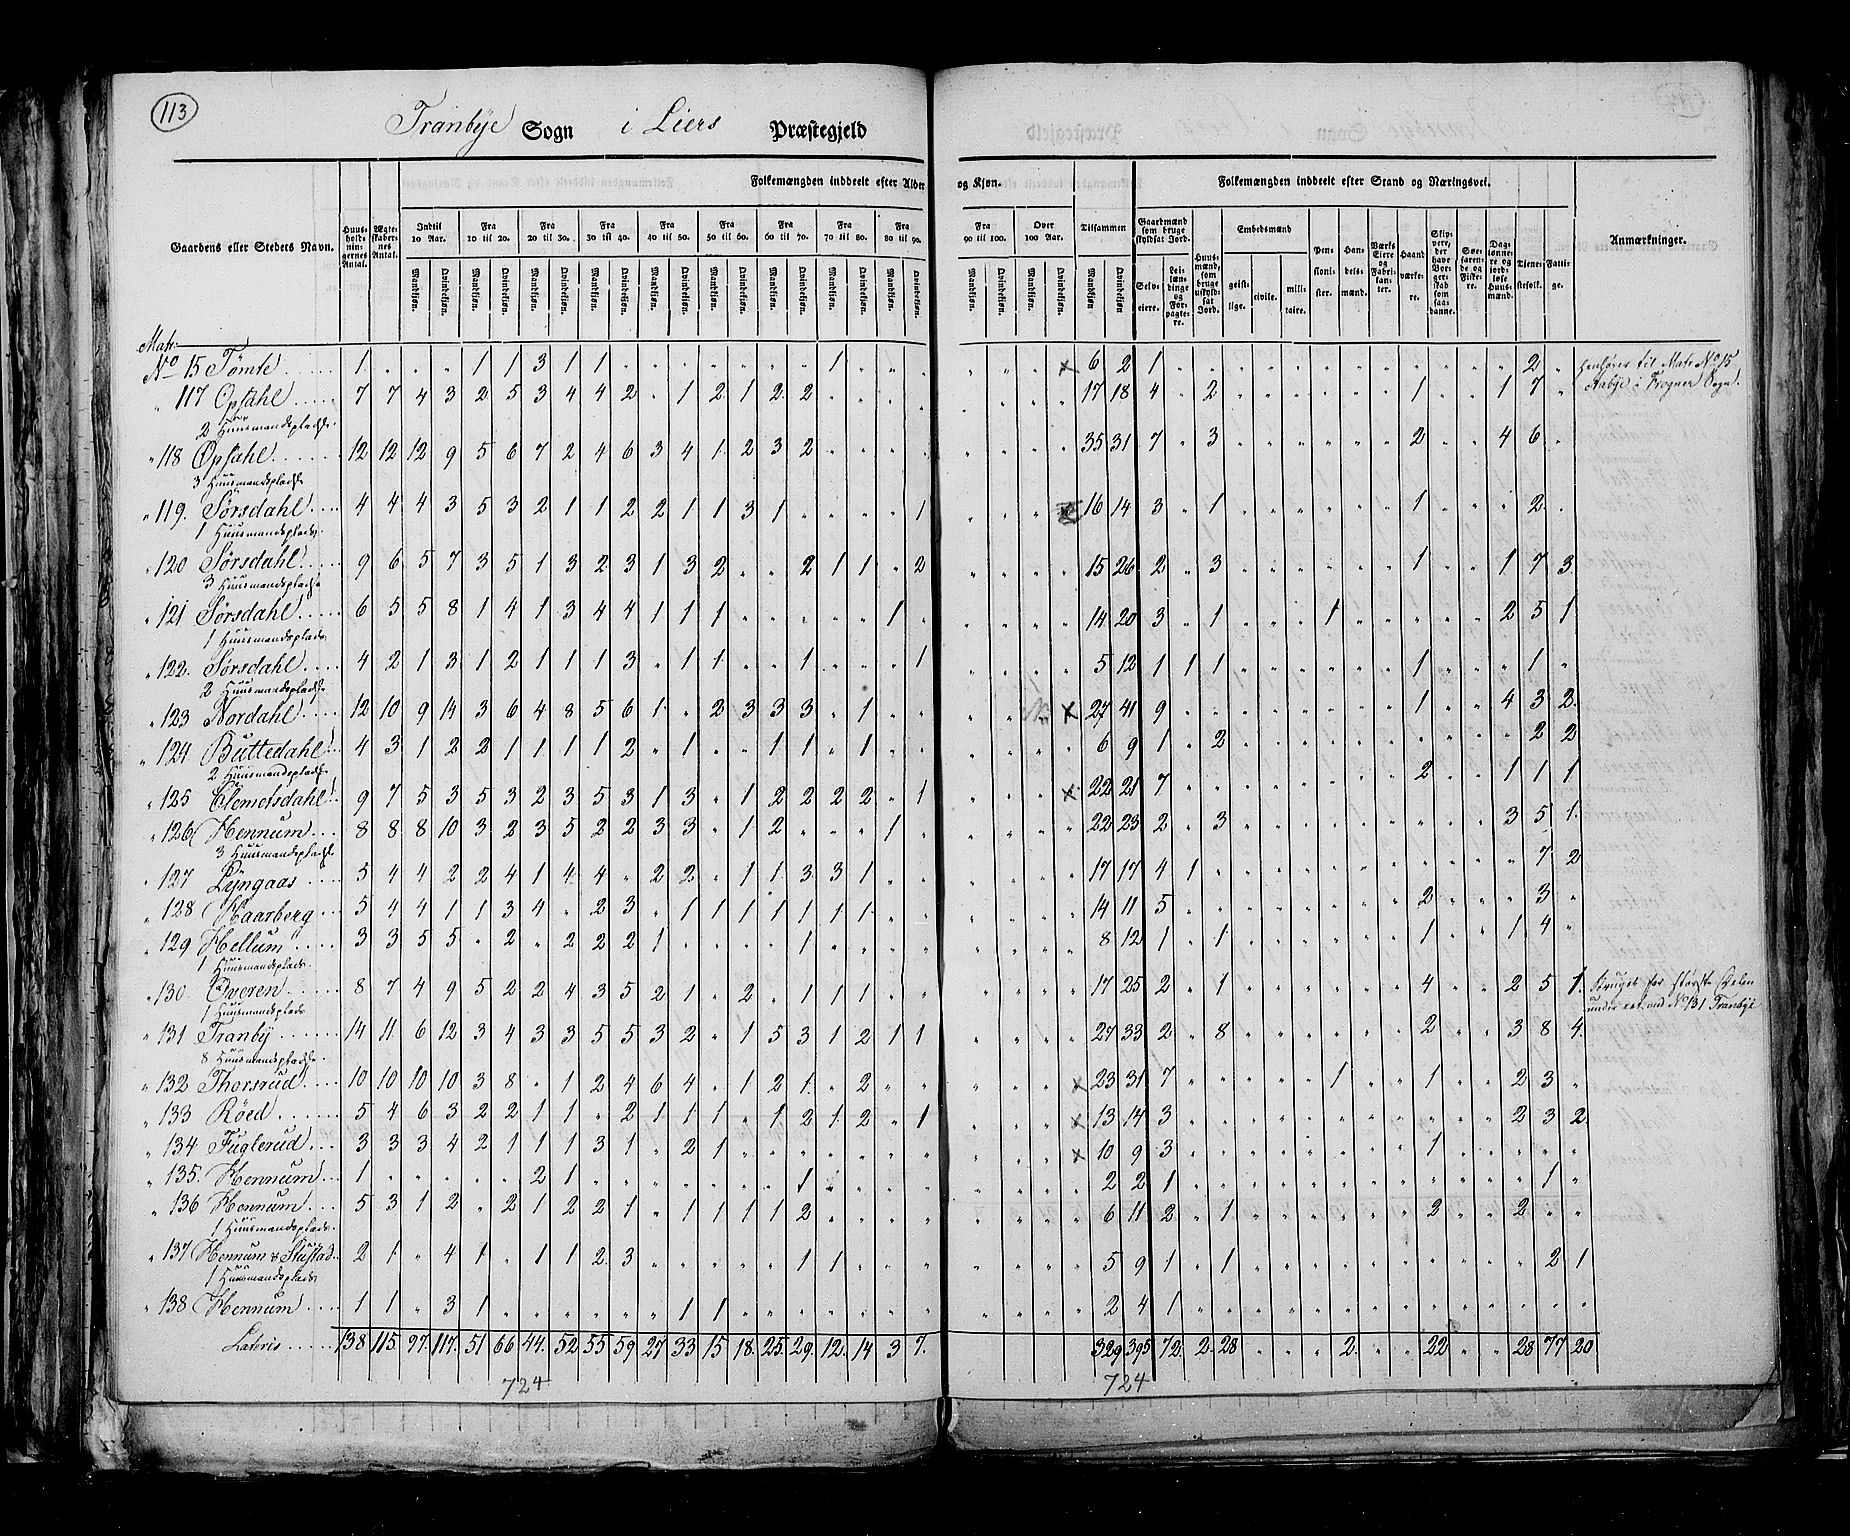 113
Tranbye Sogn i Liers Præstegjeld
Gaardens eller Stedets Navn.
Huus-holdningernes Antal.
Ægteskabernes Antal.
Folkemængden inddeelt efter Alder og Kjøn.
Indtil 10 Aar. Fra 10 til 20. Fra 20 til 30. Fra 30 til 40. Fra 40 til 50. Fra 50 til 60. Fra 60 til 70. Fra 70 til 80. Fra 80 til 90. Fra 90 til 100. Over 100 Aar. Tilsammen
Mandkjøn. Qvindekjøn.
Folkemængden inddeelt efter Stand og Næringsvei.
Gaardmænd som bruge skyldsat Jord.
Selveiere. Leilændinge og Forpagtere.
Huusmænd, som bruge uskyldsat Jord.
Embedsmænd
geistlige. civile. militaire.
Pensionister. Handelsmænd. Værks Eiere og Fabrikanter. Haandværkere. Skippere, der have Borgerskab som saadanne. Søefarende og Fiskere. Daglønnere og jordløse Huusmænd. Tjenestefolk. Fattige.
Anmærkninger.
Matr:
No 15 Tømte 1 " " " 1 1 3 1 1 " " " " " " 1 " " " " " " x 6 2 1 2 " henhører til Matr No 15
Aabye i Frogner Sogn.
" 117 Opsahl 7 7 4 3 2 5 3 4 4 2 " 1 2 1 2 2 17 18 4 " 2 1 1 7 "
2 Huusmandspladse.
" 118 Opsahl 12 12 12 9 5 6 7 2 4 6 3 4 1 2 3 2 35 31 7 " 3 2 4 6 "
3 Huusmandspladse
" 119. Sørsdahl 4 4 4 3 5 3 2 1 1 2 2 1 1 3 1 " " " " 1 16 14 3 " 1 1 " 2 "
1 Huusmandsplads.
" 120 Sørsdahl 9 6 5 7 3 5 1 3 2 3 1 3 2 " " 2 1 1 " 2 15 26 2 " 3 1 1 7 3
3 Huusmandspladse
" 121 Sørsdahl 6 5 5 8 1 4 1 3 4 4 1 1 1 " " " " " 1 " 14 20 3 " 1 1 2 5 1
1 Huusmandsplads
" 122. Sørsdahl 4 2 1 3 1 2 1 1 1 3 " 1 1 " " 1 " " " 1 5 12 1 1 1 1 " 1 "
2 Huusmandspladse
" 123 Nordahl 12 10 9 14 3 6 4 8 5 6 1 " 2 3 3 3 " 1 " " x 27 41 9 1 4 3 2
" 124 Buttedahl 4 3 1 2 2 1 1 1 1 2 " 1 " " 1 1 " 1 " " 6 9 1 " 2 2 2
2 Huusmandspladse
" 125 Clemetsdahl 9 7 5 3 5 3 2 3 5 3 1 3 " 1 2 2 2 2 " 1 x 22 21 7 2 1 1 1
" 126 Hennum 8 8 8 10 3 2 3 5 2 2 3 3 " 1 2 " " " 1 " 22 23 2 " 3 3 5 1
3 Huusmandspladse
" 127 Lyngaas 5 4 4 2 2 4 1 4 4 " 2 2 " 1 1 3 3 1 " " 17 17 4 1 7 2
" 128 Haarberg 5 4 4 1 1 3 4 " 2 3 " 1 1 1 1 1 1 1 " " 14 11 5 2 3 "
" 129 Hellum 3 3 5 5 " 2 " 2 2 2 1 " " " " 1 " " " " 8 12 1 " 1 1 1 4 "
1 Huusmandsplads.
" 130. Overen 8 7 4 9 5 2 2 4 3 5 2 1 " 2 " 1 1 1 " " 17 25 2 " 1 4 2 5 1. Bruges for største Delen
under eet med No 131 Tranbye
1 Huusmandsplads
" 131 Tranby 14 11 6 12 3 4 3 3 5 5 3 2 " 1 5 3 1 2 1 1 27 33 2 " 8 2 3 8 4
8 Huusmandspladse.
" 132 Thorsrud 10 10 10 10 3 8 " 1 2 4 6 4 " 1 2 1 " 2 " " x 23 31 7 1 1 2 3 "
" 133 Röed 5 4 6 3 2 2 1 1 " 2 1 1 1 " 1 2 1 2 " 1 x 13 14 3 2 3 2
" 134 Fuglerud 3 3 3 4 2 1 1 1 3 1 " 2 1 x 10 9 3 1 " " "
" 135. Hennum 1 " " " " " 2 1 " " " " " " " 1 2 2 1 1 "
" 136 Hennum 5 3 1 2 " 2 1 2 2 1 " 1 1 1 1 2 6 11 2 " 1 2 2 " "
1 Huusmandsplads.
" 137 Hennum & Stustad 2 1 " 4 1 " 1 1 2 3 " " " " " 1 1 5 9 1 " 1 2 1
1 Huusmandsplads
" 138 Hennum 1 1 " 3 1 " " " " " " 1 1 2 4 1 " "
Lateris 138 115 97 117 51 66 44 52 55 59 27 33 15 18 25 29 12 14 3 7 329 395 72 2 28 2 22 28 77 20
724 724